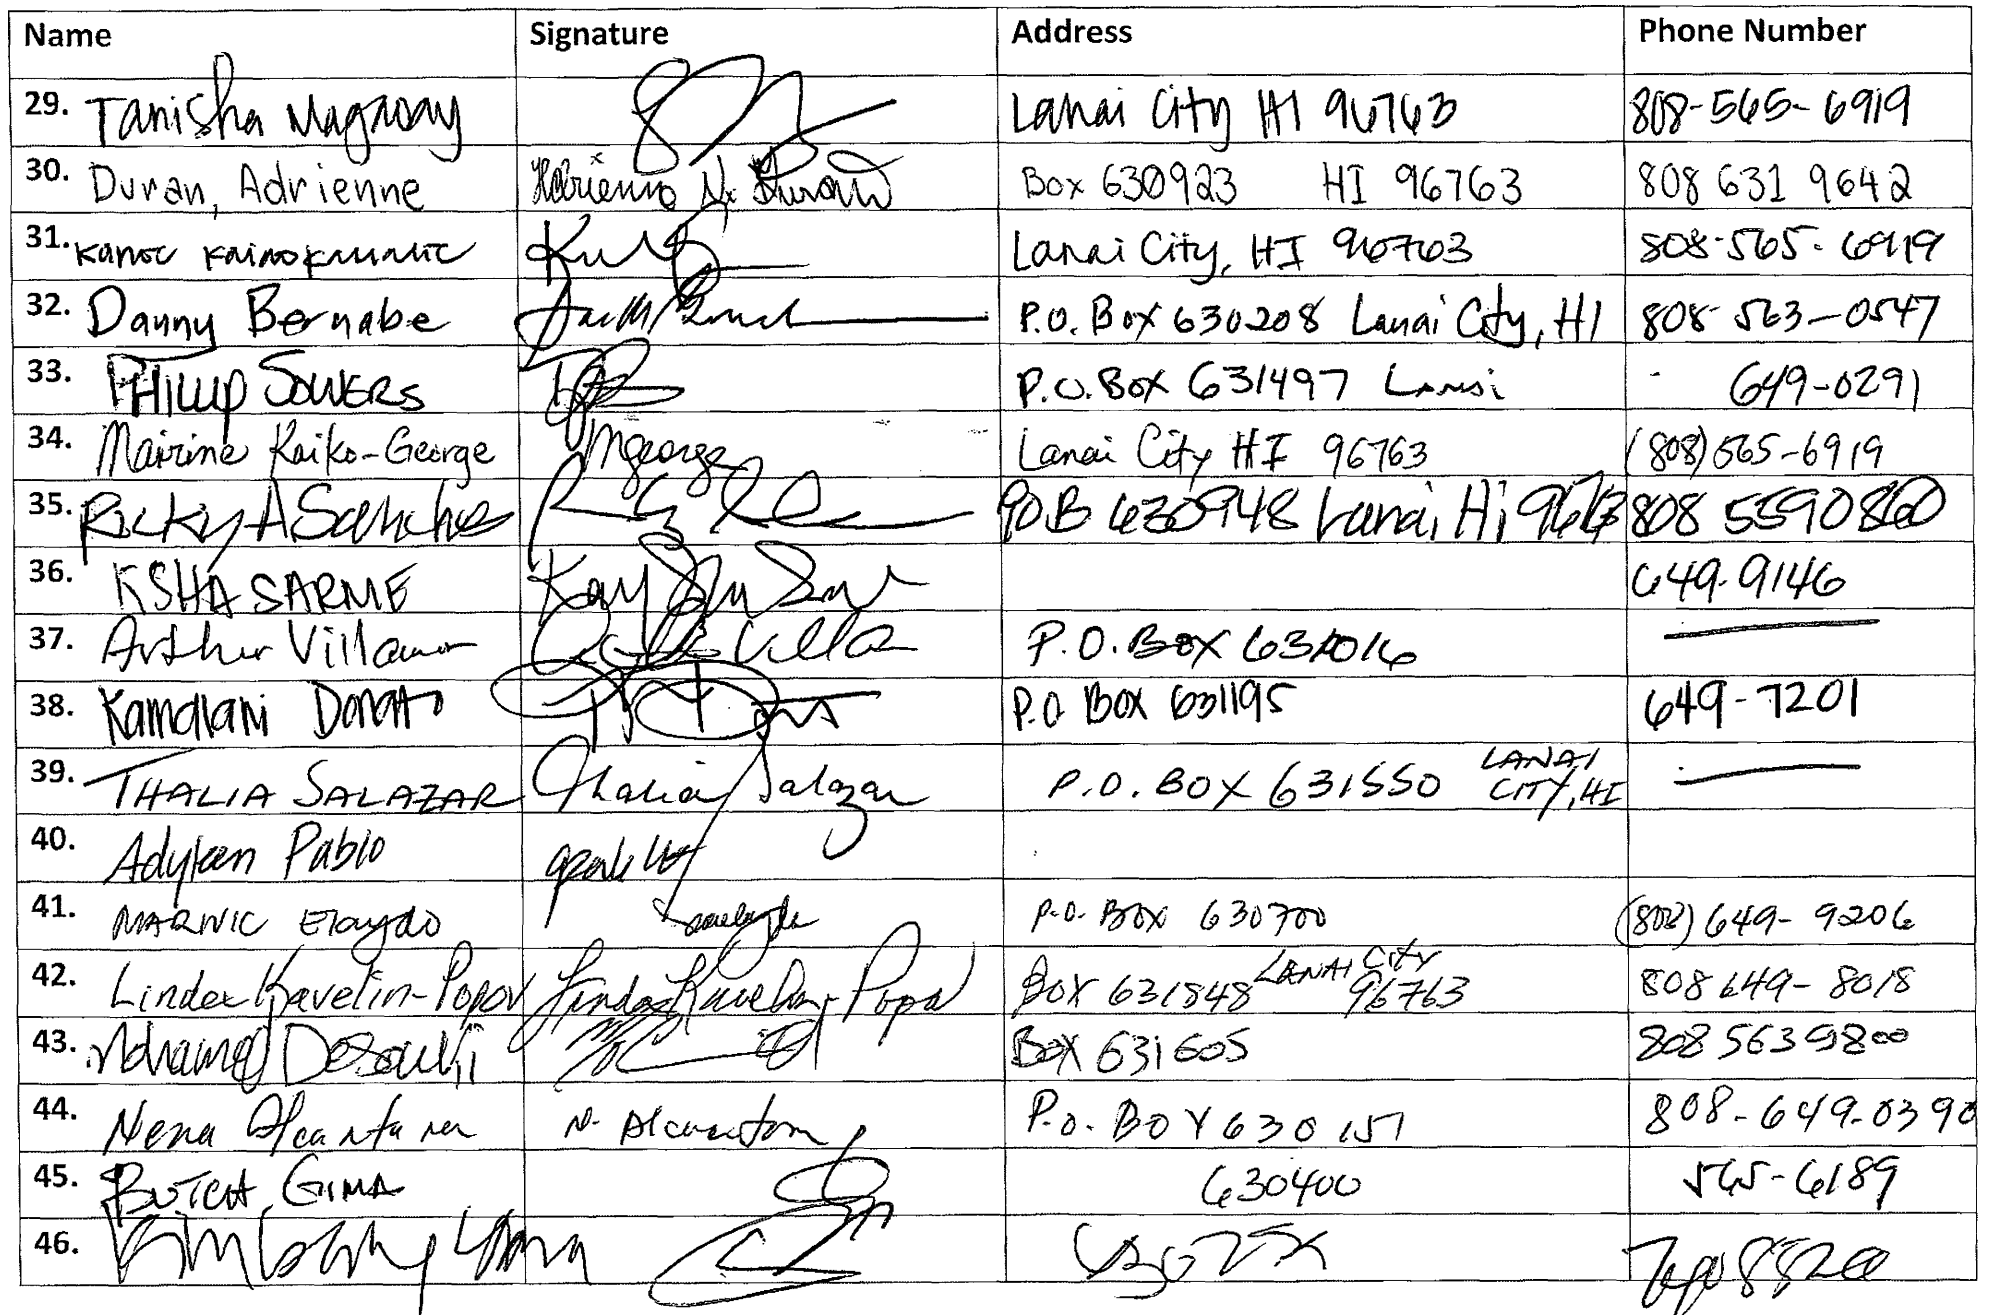 Name Signature Address Phone Number
29. Tanisha Magaoay Lanai City HI 96763 808-565-6919
30. Duran, Adrienne Adrienne N. Duran Box 630923 HI 96763 808 631 9642
31. Lanai City, HI 96763 808-565-6919
32. Danny Bernabe P.O. Box 630208 Lanai City, HI 808-563-0547
33. PHILLIP SOWERS P.O. Box 631497 Lanai 649-0291
34. Mairine Kaiko-George MGeorge Lanai City HI 96763 (808) 565-6919
35. Ricky A Sanches P.O.B 630948 Lanai, Hi 96763 808 5590860
36. KSHA SARME 649-9146
37. Arthur Villamor P.O. Box 631016
38. Kamalani Donato P.O BOX 631195 649-7201
39. THALIA SALAZAR Thalia Salazar P.O. BOX 631550 LANAI CITY, HI
40. Pablo
41. MARNIC Elaydo P.O. BOX 630700 (808) 649-9206
42. Linda Kavelin-Popov Linda Kavelin-Popov Box 631848 LANAI City 96763 808 649-8018
43. Mohamed Desouki Box 631605 808 5639800
44. Nena Alcantara N. Alcantara P.O. BOX 630151 808-649-0390
45. BUTCH GIMA 630400 565-6189
46.